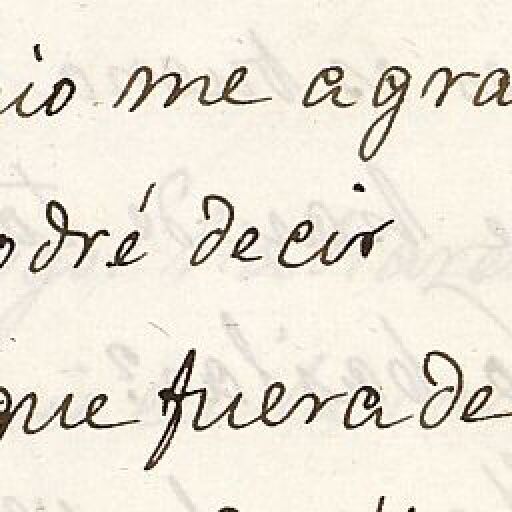 io me agra
odré decir
que fuera de